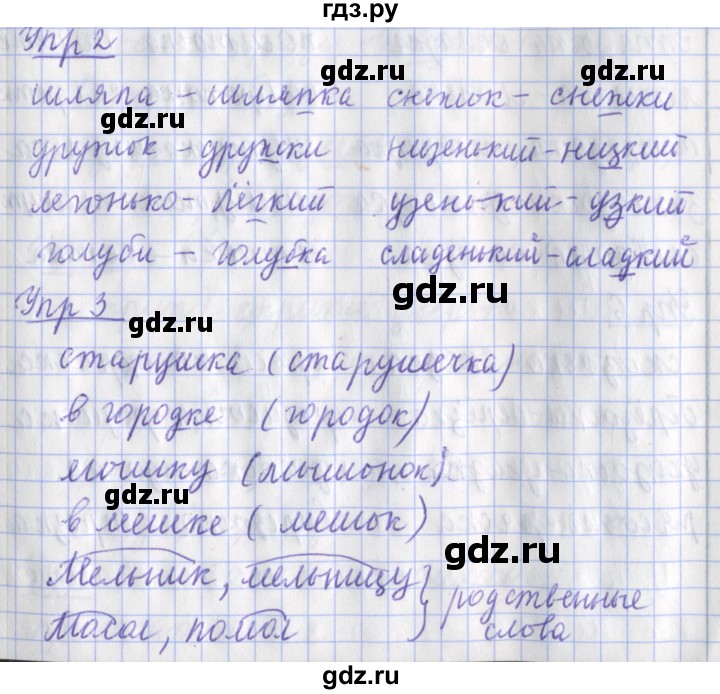 гдз.ру
Упр 2
gdz.ru
шляпа – шляпка снежок – снежки
gdz.ru gdz.ru
дружок – дружки низенький – низкий
легонько – лёгкий узень-кий – узкий
gdz.ru gdz.ru
голуби – голубка сладенький – сладкий
gdz.ru
Упр 3
gdz.ru
старушка (старушечка)
в городке (городок)
мошку (мышонок)
gdz.ru
в мешке (мешок)
gdz.ru
Мельник, мельницу } родственные
помол } слова
gdz.ru
gdz.ru